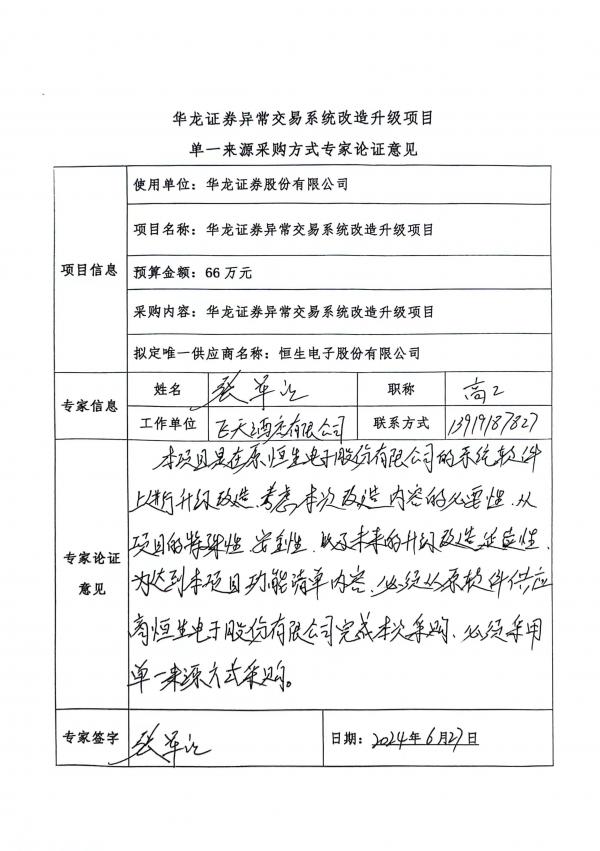 华龙证券异常交易系统改造升级项目
单一来源采购方式专家论证意见
项目信息
使用单位：华龙证券股份有限公司
项目名称：华龙证券异常交易系统改造升级项目
预算金额：66万元
采购内容：华龙证券异常交易系统改造升级项目
拟定唯一供应商名称：恒生电子股份有限公司
专家信息
姓名 张军 职称 高工
工作单位 飞天酒店有限公司 联系方式 13919187827
专家论证
意见
本项目是在原恒生电子股份有限公司的系统软件
上进行升级改造，考虑本次改造内容的必要性，从
项目的特殊性、安全性、以及未来的升级改造延续性，
为达到本项目功能清单内容，必须从原软件供应
商恒生电子股份有限公司完成本次采购、必须采用
单一来源方式采购。
专家签字 张军 日期：2024年6月27日